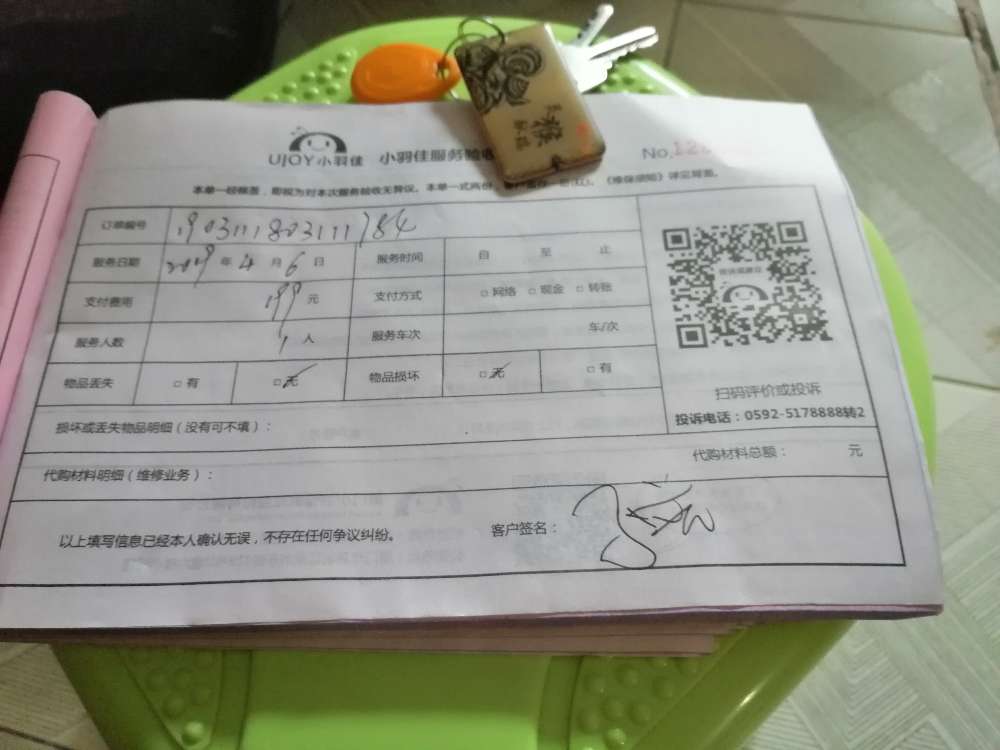 UJOY小羽佳 小羽佳服务验收
No.12
本单一经签署，即视为对本次服务验收无异议。本单一式两份，《维保须知》详见背面。
订单编号 190311180311784
服务日期 2019 年 4 月 6 日 服务时间 自 至 止
支付费用 199 元 支付方式 □网络 □现金 □转账
服务人数 1 人 服务车次 车/次
物品丢失 □有 □无 物品损坏 □无 □有
扫码评价或投诉
投诉电话：0592-5178888转2
损坏或丢失物品明细（没有可不填）：
代购材料明细（维修业务）： 代购材料总额： 元
以上填写信息已经本人确认无误，不存在任何争议纠纷。 客户签名：
猴